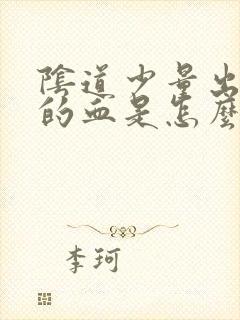 陰道少量出
的血是怎麼
李珂